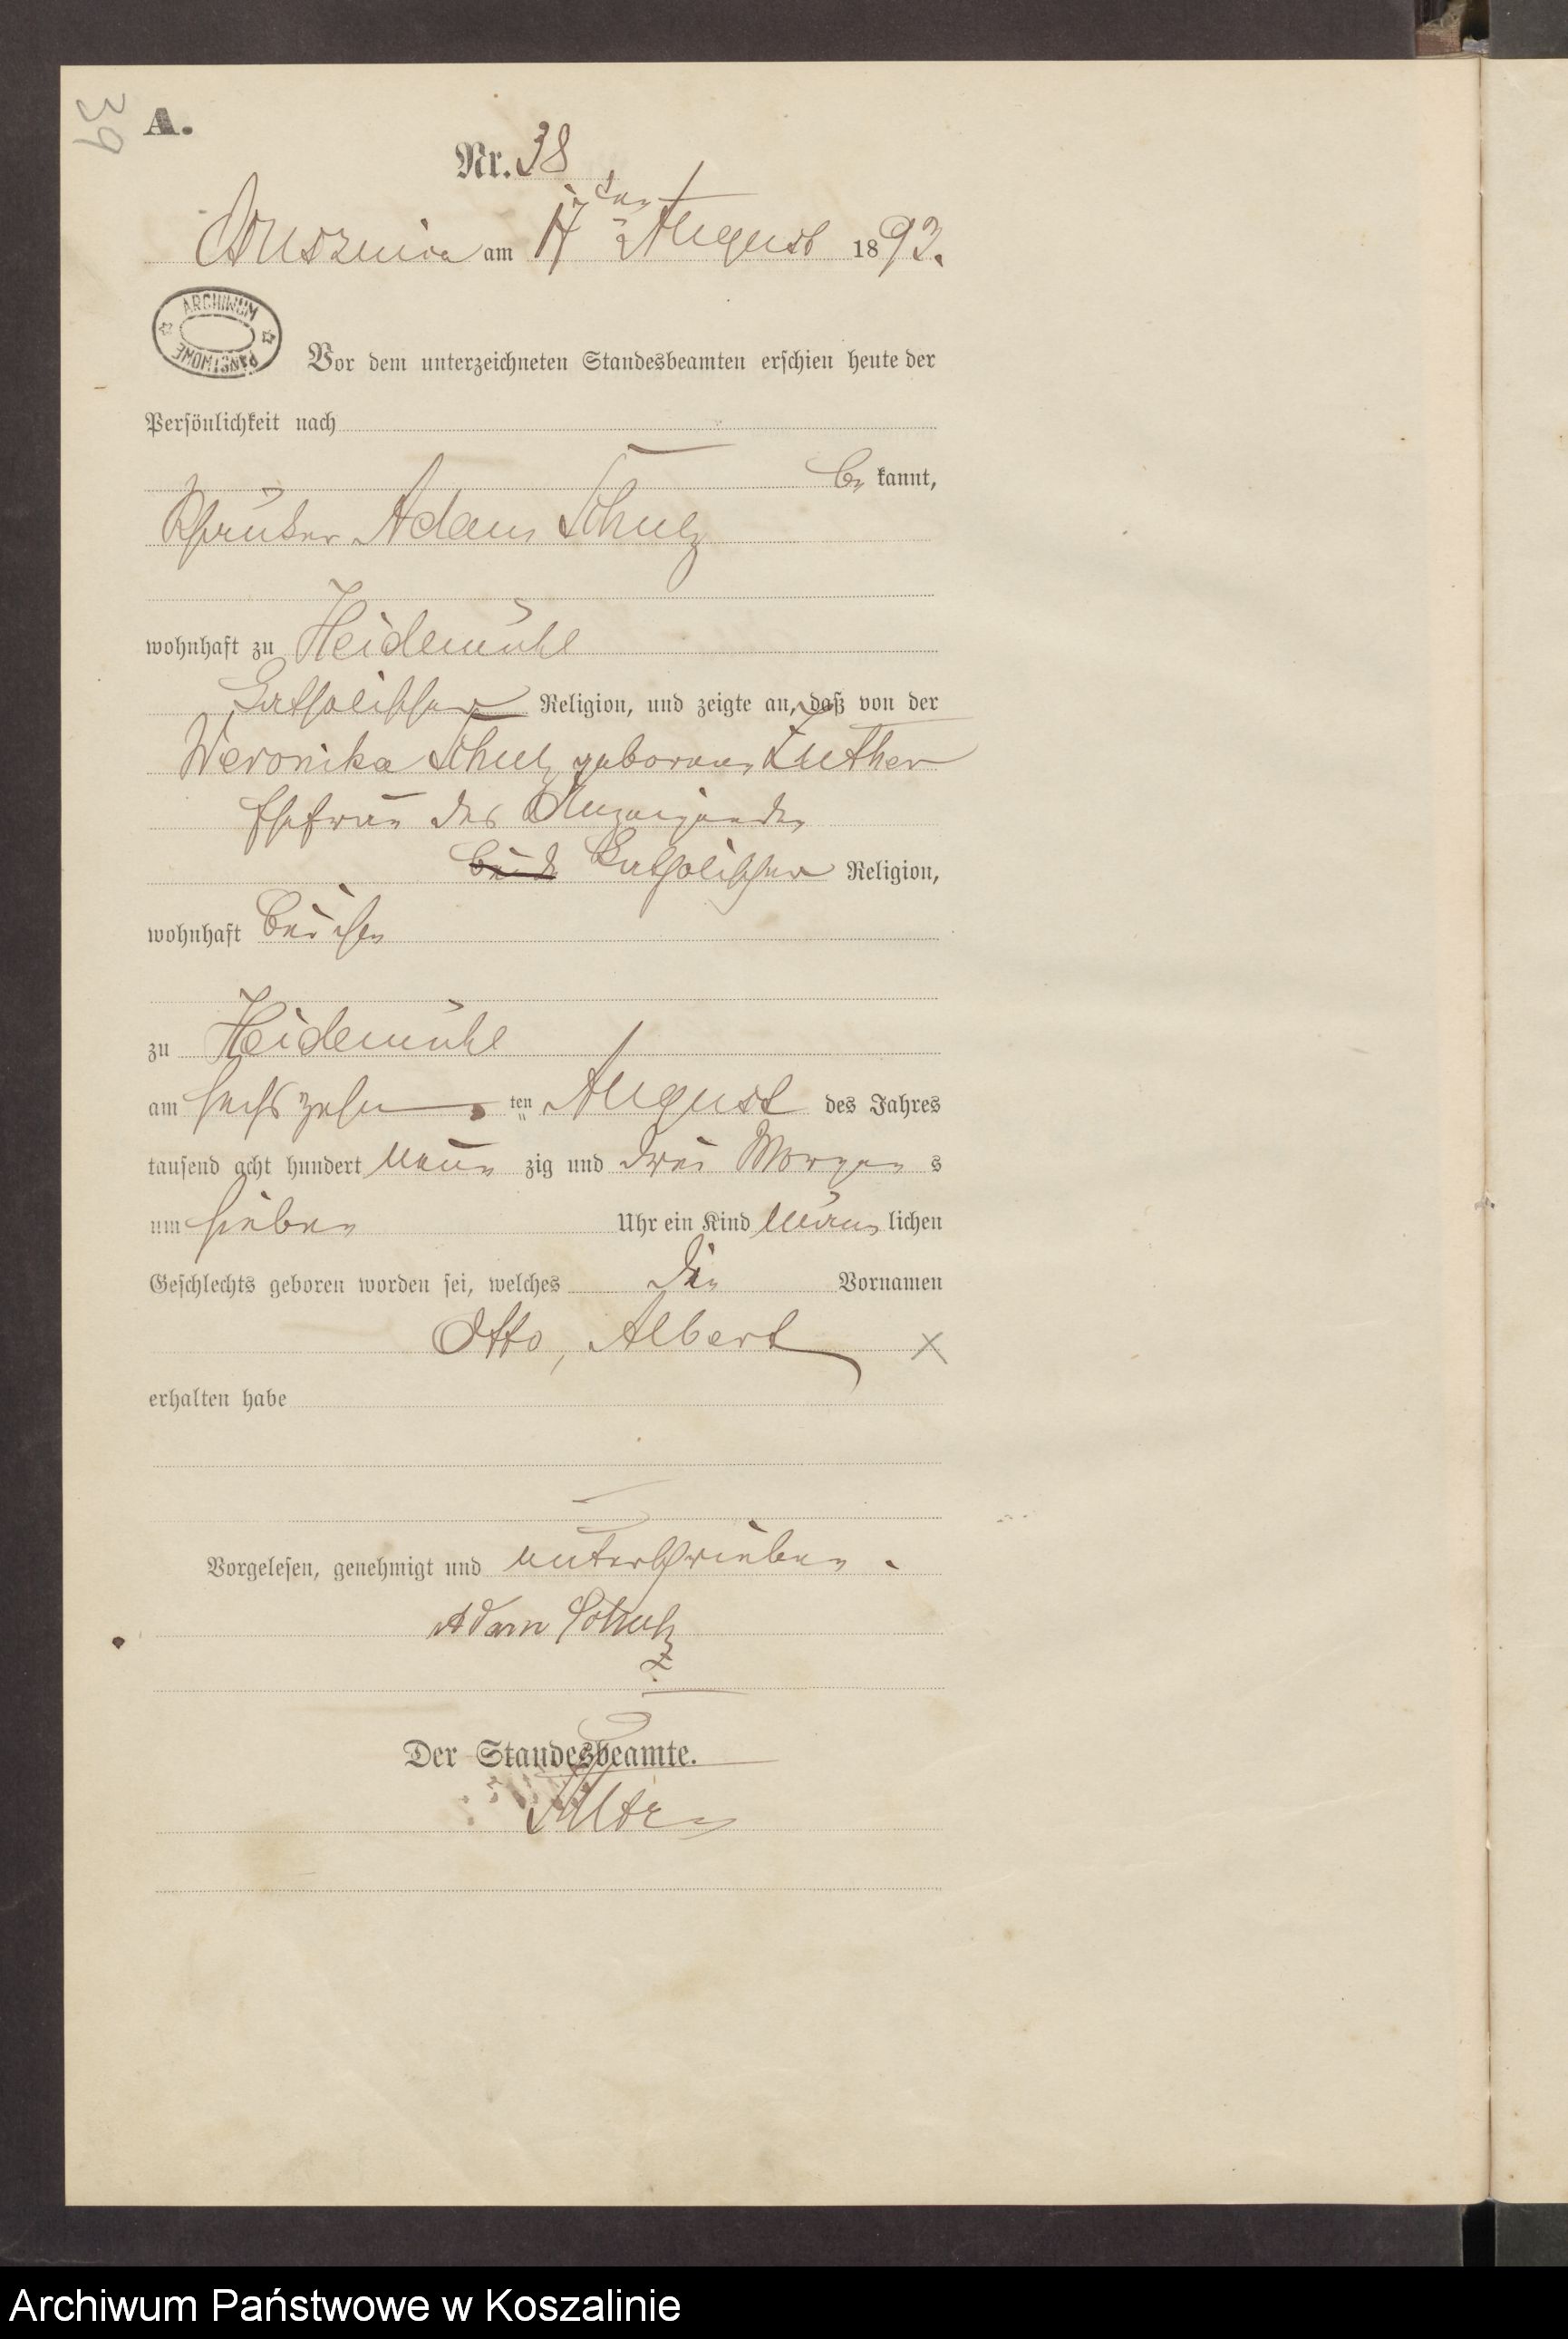 39
A.
Nr. 38
am 17 ten August 1893.
ARCHIWUM
PAŃSTWOWE
Vor dem unterzeichneten Standesbeamten erschien heute der
Persönlichkeit nach
be kannt,
Adam Schulz
wohnhaft zu Heidemühl
Katholischer Religion, und zeigte an, daß von der
Weronika Schulz geborenen Luther
Ehefrau des Anzeigenden
Katholischer Religion,
wohnhaft bei ihm
zu Heidemühl
am sechszehn ten August des Jahres
tausend acht hundert neun zig und drei Morgen s
um sieben Uhr ein Kind männ lichen
Geschlechts geboren worden sei, welches die Vornamen
Otto, Albert
erhalten habe
Vorgelesen, genehmigt und unterschrieben.
Adam Schulz
Der Standesbeamte.
Archiwum Państwowe w Koszalinie